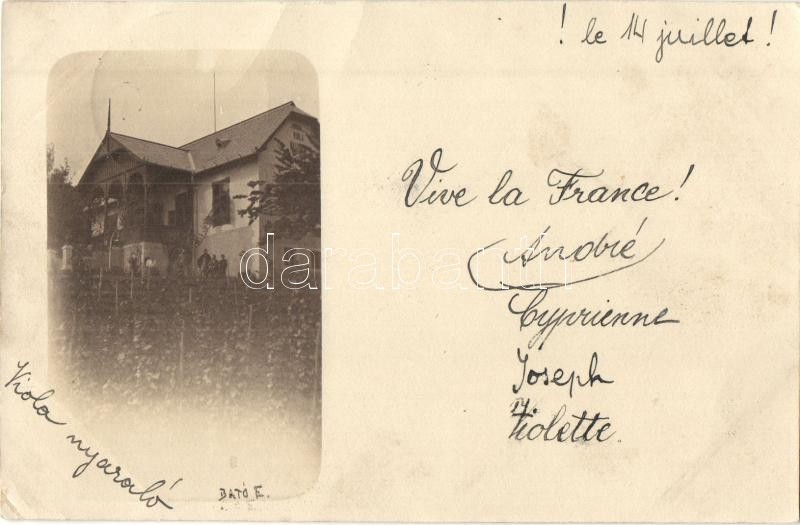 ! le 14 juillet !
Vive la France!
André
Cyprienne
Joseph
Violette.
Viola nyaraló
BATÓ E.
darabanth